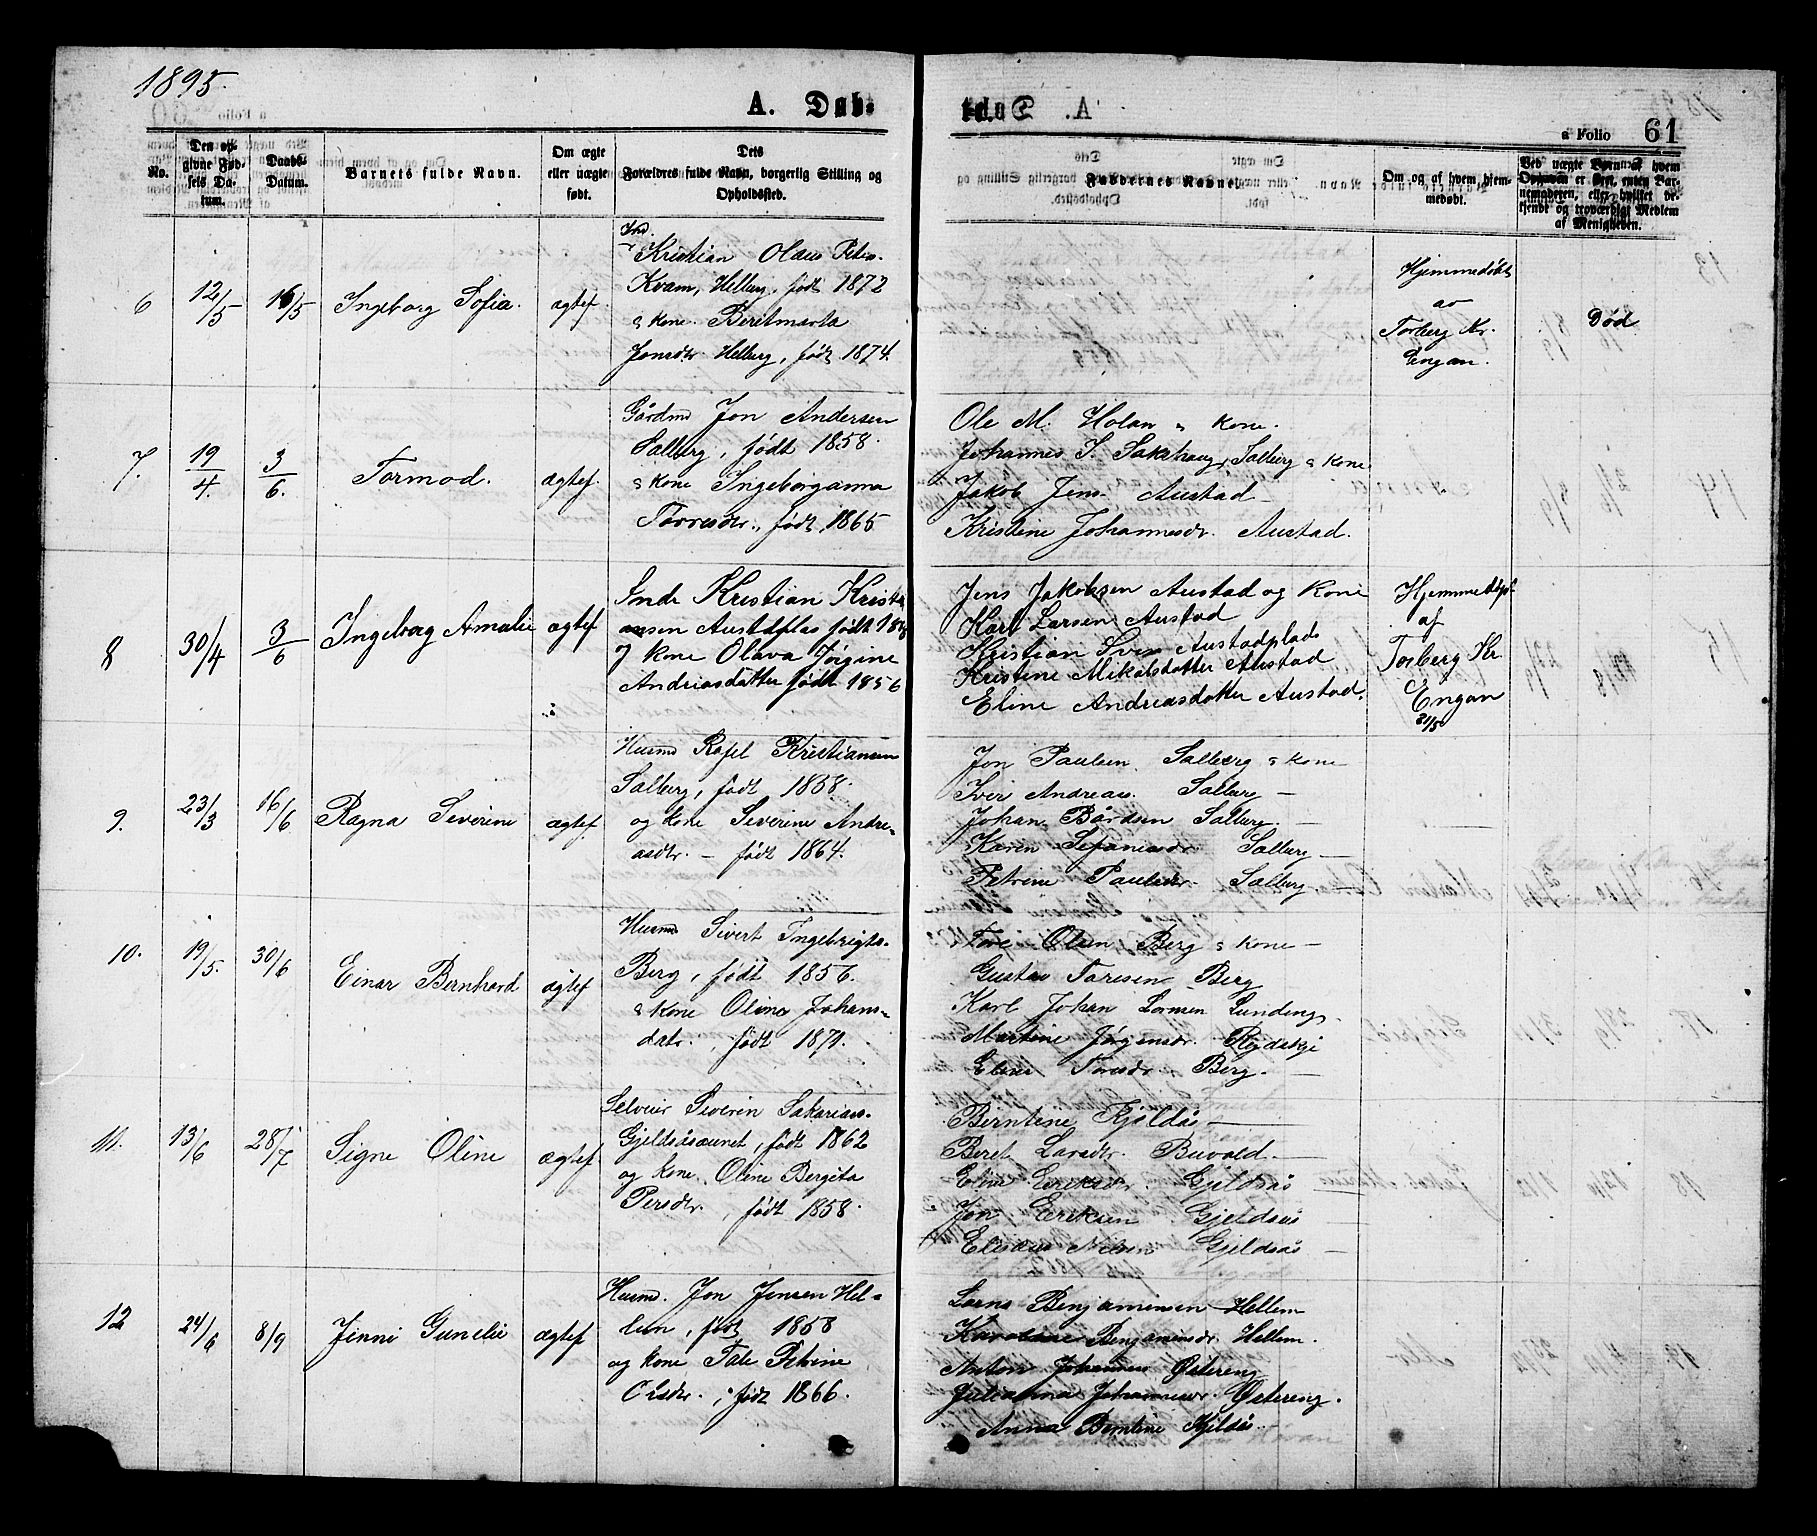 1895.
A. Dåb-
a Folio 61
No.
Den opgivne Fødsels Datum.
Daabs-Datum.
Barnets fulde Navn.
Om ægte eller uægte født.
Dets Forældres fulde Navn, borgerlig Stilling og Opholdssted.
Faddernes Navne.
Om og af hvem hjemmedøbt.
6 12/5 16/5 Ingeborg Sofia. ægtef.
Ind.
Kristian Olaus Peters.
Kvam, Helberg, født 1872
& kone Beritmarta
Jonsdtr. Helberg, født 1874.
Hjemmedøbt
av
Torberg Kr.
Engan.
Død
7. 19/4. 3/6. Tormod. ægtef.
Gårdmd Jon Andersen
Salberg, født 1858.
& kone Ingeborganna
Torresdtr., født 1865
Ole M. Holan & kone.
Johannes S. Sakshaug, Salberg & kone
Jakob Jens. Austad —
Kristine Johannesdr. Austad.
8 30/4 3/6 Ingeborg Amalie ægtef
Indr Kristian Kristi
ansen Austdplas født
og kone Olava Jørgine
Andriasdatter født 1856
Jens Jakobsen Austad og Kone
Karl Larsen Austad
Kristian Sven Austadplads
Kristine Mikalsdatter Austad
Eline Andriasdatter Austad.
Hjemmedøpt
af
Torberg Kr
Engan
31/5
9. 23/3 16/6 Ragna Severine ægtef.
Husmd Rafel Kristiansen
Salberg, født 1858.
og kone Severine Andre-
asdtr. — født 1864.
Jon Paulsen Salberg & kone
Iver Andreas. Salberg —
Johan Bårdsen Salberg. —
Karen Sefaniasdr. Salberg —
Petrine Paulsdr. Salberg —
10. 19/5. 30/6 Einar Bernhard ægtef
Husmd Sivert Ingebrigts.
Berg, født 1856.
& kone Olina Johans-
datr. , født 1871.
Tore Olsen Berg & kone —
Gustav Toresen Berg
Karl Johan Lornsen Lunding.
Martine Jørgensdr.
Eline Toresdr. Berg. —
11. 13/6 28/7 Signe Oline ægtef.
Selveier Severin Sakarias.
Gjeldsåsaunet, født 1862
og kone Oline Bergita
Persdtr. , født 1858.
Berntine Kjeldås —
Beret Larsdtr. Buvold. —
Eline Eriksdr. Gjeldsås —
Jon Eriksen Gjeldsås —
Eliseus Nilsen Gjeldsås —
12 24/6 8/9 Jinni Gunelie ægtef
Husmd. Jon Jensen Hel-
lem, født 1858
og kone Tale Petrine
Olsdtr. , født 1866.
Lorns Benjaminsen Hellem
Karoline Benjaminsdr. Hellem.
Anton Johannes Østereng
Julianna Johannesdr. Østereng.
Anna Berntine Kjeldås.